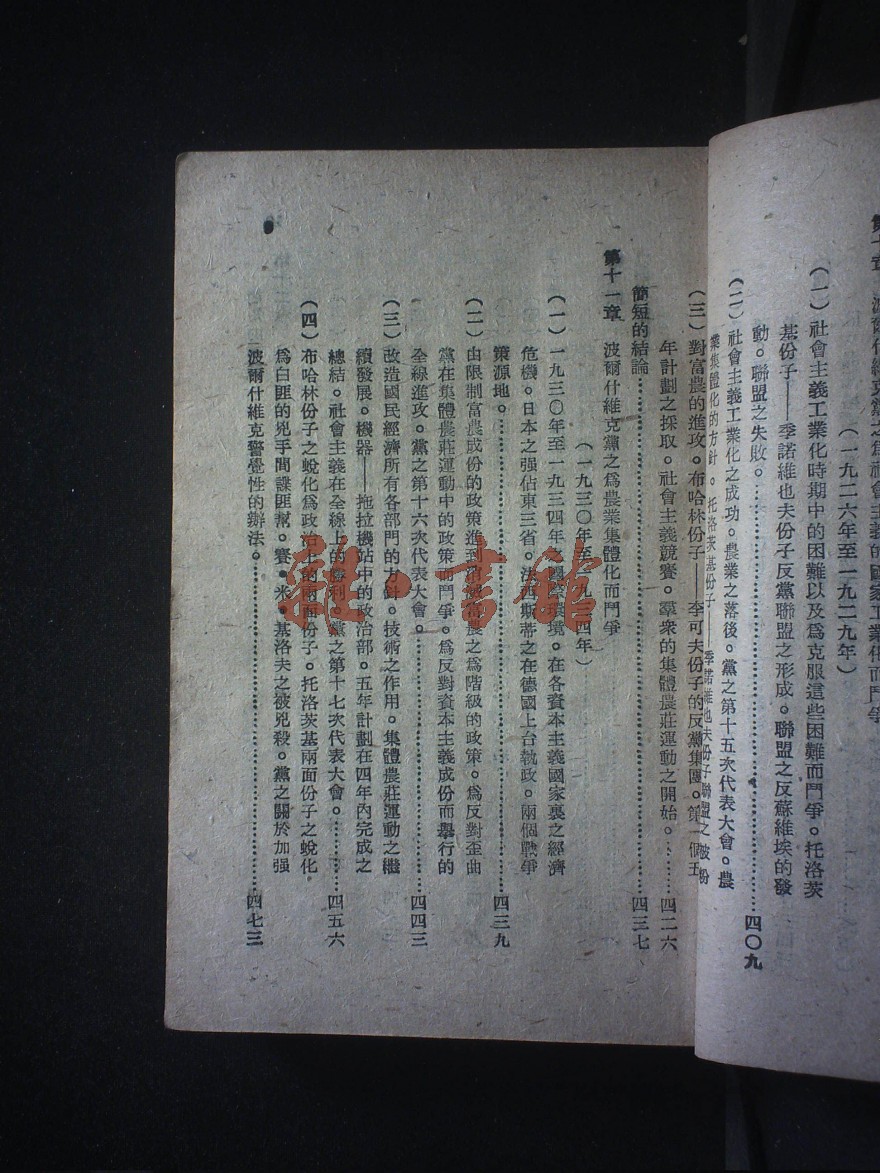 波爾什維克黨之爲社會主義的國家工業化而鬥爭
(一九二六年至一九二九年)
(一)社會主義工業化時期中的困難以及爲克服這些困難而鬥爭。托洛茨
基份子——季諾維也夫份子反黨聯盟之形成。聯盟之反蘇維埃的發
動。聯盟之失敗。……四〇九
(二)社會主義工業化之成功。農業之落後。黨之第十五次代表大會。農
業集體化的方針。托洛茨基份子——季諾維也夫份子聯盟之被粉
(三)對富農的進攻。布哈林份子——李可夫份子的反黨集團。第一個五
年計劃之採取。社會主義競賽。羣衆的集體農莊運動之開始。……四二六
簡短的結論……四三七
第十一章 波爾什維克黨之爲農業集體化而鬥爭
(一九三〇年至一九三四年)
(一)一九三〇年至一九三四年之國際環境。在各資本主義國家裏之經濟
危機。日本之强佔東三省。法西斯蒂之在德國上台執政。兩個戰爭
策源地。……四三九
(二)由限制富農成份的政策進到消滅富農之爲階級的政策。爲反對歪曲
黨在集體農莊運動中的政策而鬥爭。爲反對資本主義成份而舉行的
全線進攻。黨之第十六次代表大會。……四四三
(三)改造國民經濟所有各部門的方針。技術之作用。集體農莊運動之繼
續發展。機器——拖拉機站中的政治部。五年計劃在四年內完成之
總結。社會主義在全線上的勝利。黨之第十七次代表大會。……四五六
(四)布哈林份子之蛻化爲政治上的兩面份子。托洛茨基兩面份子之蛻化
爲白匪的兇手間諜匪幫。賽·米·基洛夫之被兇殺。黨之關於加强
波爾什維克警覺性的辦法。……四七三
雜書館